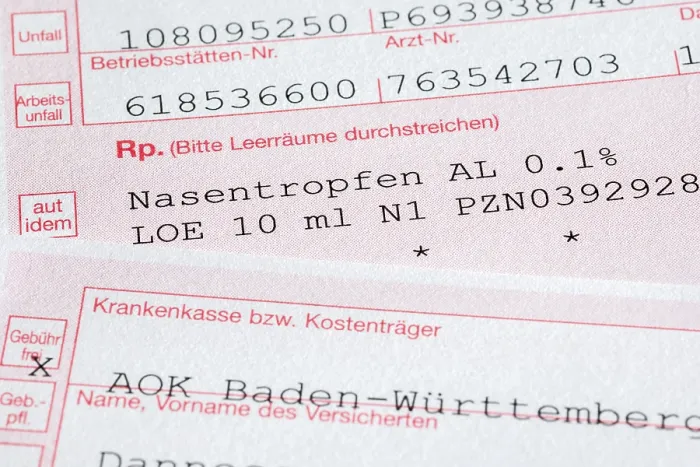 Unfall
108095250 P69393874
Da
Betriebsstätten-Nr.
Arzt-Nr.
Arbeits-
unfall
618536600 763542703 1
Rp. (Bitte Leerräume durchstreichen)
aut
idem
Nasentropfen AL 0.1%
LOE 10 ml N1 PZN0392928
* *
Krankenkasse bzw. Kostenträger
Gebühr
frei
X
AOK Baden-Württemberg
Geb.-
pfl.
Name, Vorname des Versicherten